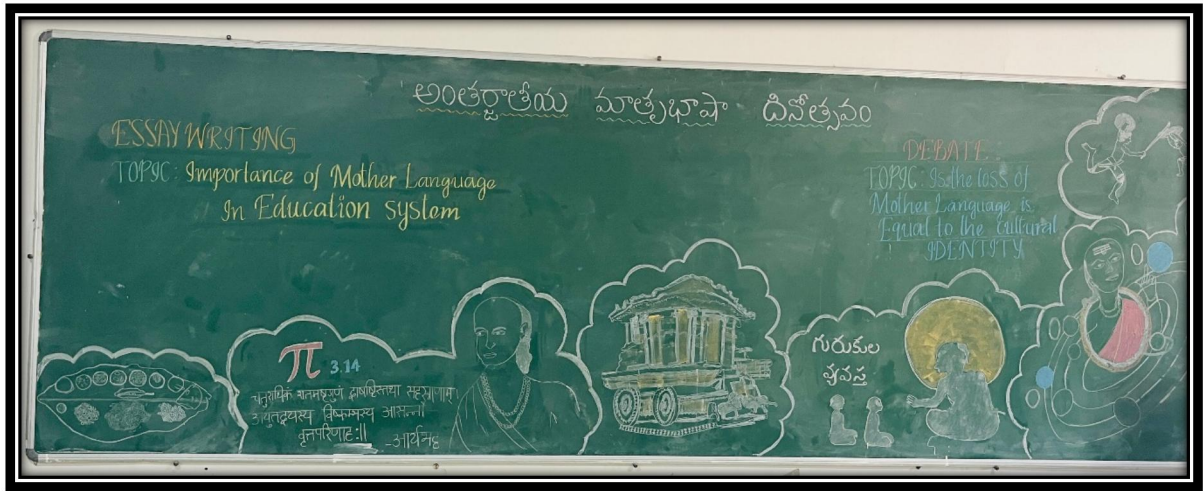 అంతర్జాతీయ మాతృభాషా దినోత్సవం
ESSAY WRITING
TOPIC: Importance of Mother Language
In Education system
DEBATE
TOPIC: Is the loss of
Mother Language is
Equal to the cultural
IDENTITY
π 3.14
चतुराधिक शतमष्टगुणं द्वाषष्टिस्तथा सहस्राणाम्
अयुतद्वयस्य विष्कम्भस्य आसन्नो
वृत्तपरिणाह:॥
-आर्यभट्ट
గురుకుల
వ్యవస్థ